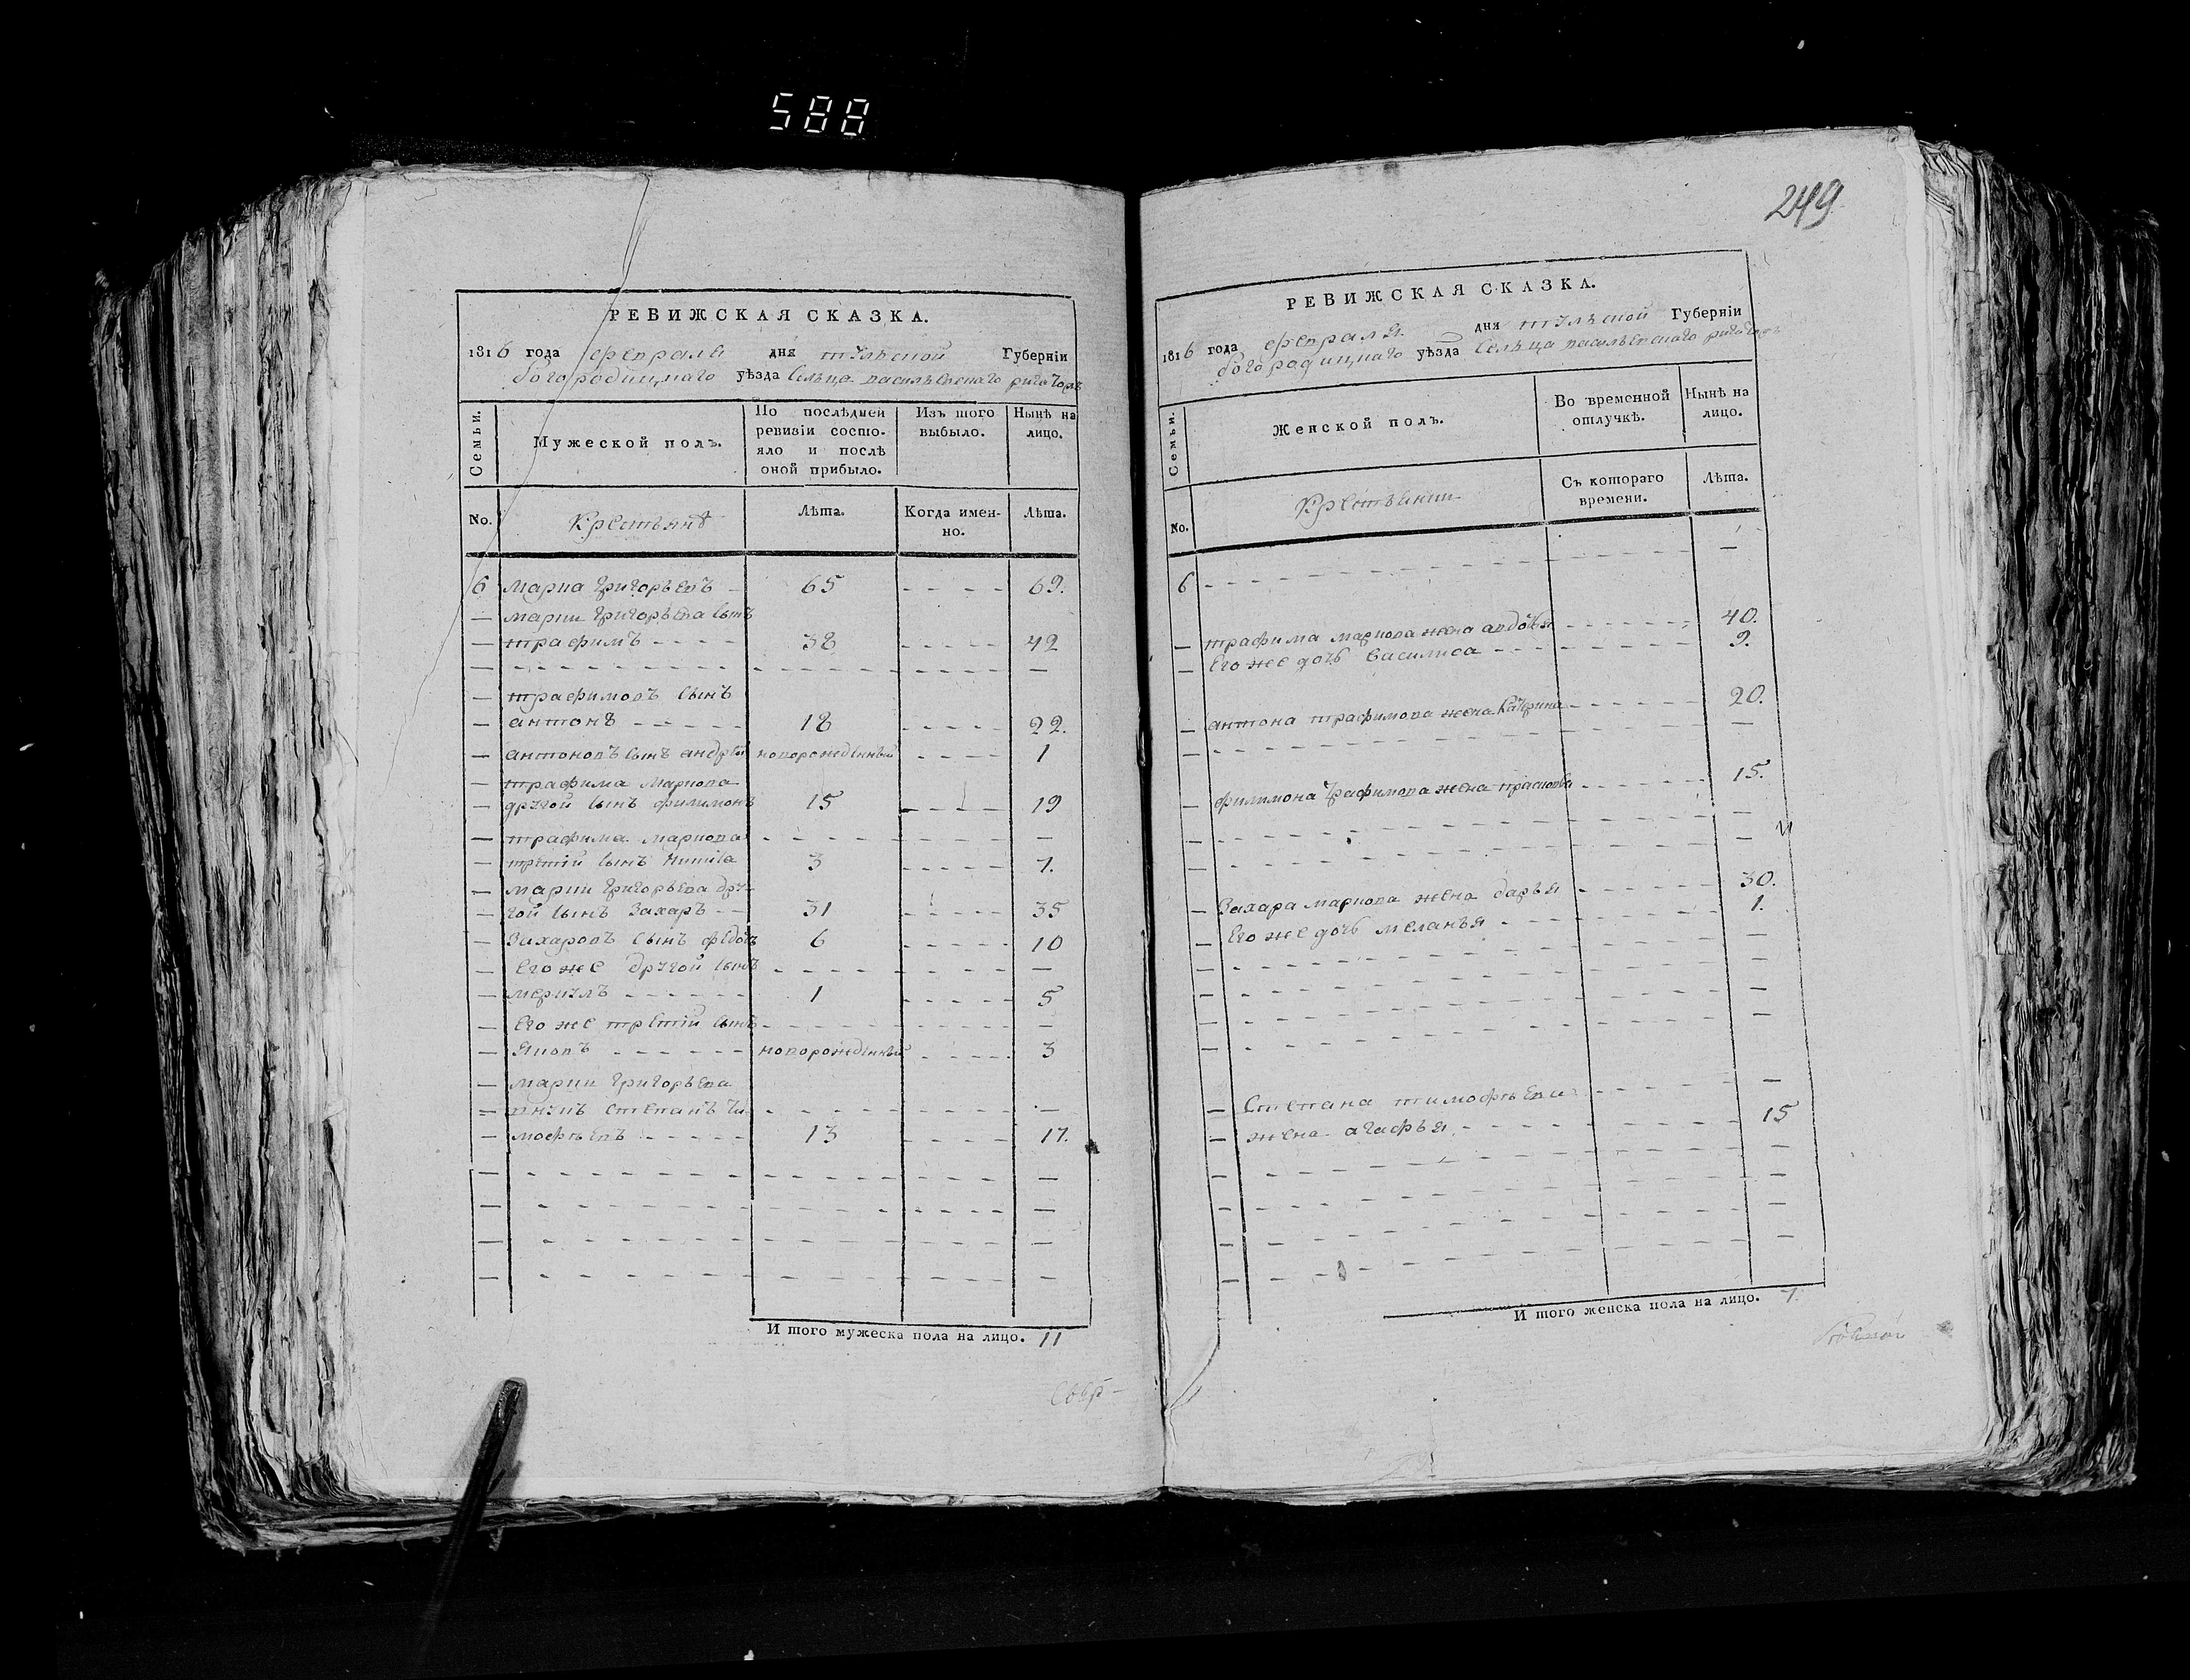 588
РЕВИЖСКАЯ СКАЗКА.
1816 года февраля дня тульской Губерніи
богородицкаго уѣзда Сельца васильевскаго
Семьи.
Мужеской полъ.
По послѣдней ревизіи состояло и послѣ оной прибыло.
Изъ того выбыло.
Нынѣ на лицо.
No.
Крестьянѣ
Лѣта.
Когда именно.
Лѣта.
6 марка григорьевъ 65 69.
марки григорьева сынъ
трафимъ 38 42
трафимовъ сынъ
антонъ 18 22.
антоновъ сынъ андрей новорожденный 1
трафима маркова
другой сынъ филимонъ 15 19
трафима маркова
третій сынъ 3 7.
марки григорьева дру-
гой сынъ Захаръ 31 35
Захаровъ сынъ федотъ 6 10
Его же другой сынъ
меркулъ 1 5
Его же третій сынъ
яковъ новорожденный 3
марки григорьева
внукъ степанъ ти-
мофѣевъ 13 17.
И того мужеска пола на лицо. 11
249
РЕВИЖСКАЯ СКАЗКА.
1816 года февраля дня тульской Губерніи
богородицкаго уѣзда Сельца васильевскаго
Семьи.
Женской полъ.
Во временной отлучкѣ.
Нынѣ на лицо.
No.
Крестьянки
Съ котораго времени.
Лѣта.
6
трафима маркова жена авдотья 40.
Его же дочь василиса 9.
антона трафимова жена катерина 20.
филимона трафимова жена прасковья 15.
Захара маркова жена дарья 30.
Его же дочь меланья 1.
Степана тимофѣева
жена агафья 15
И того женска пола на лицо. 7.